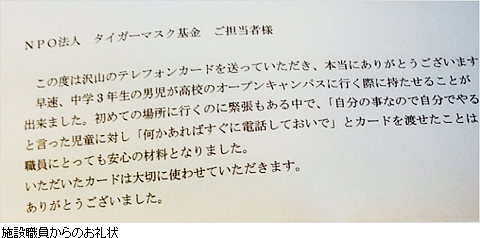 NPO法人 タイガーマスク基金 ご担当者様
この度は沢山のテレフォンカードを送っていただき、本当にありがとうございます
早速、中学3年生の男児が高校のオープンキャンパスに行く際に持たせることが
出来ました。初めての場所に行くのに緊張もある中で、「自分の事なので自分でやる
と言った児童に対し「何かあればすぐに電話しておいで」とカードを渡せたことは
職員にとっても安心の材料となりました。
いただいたカードは大切に使わせていただきます。
ありがとうございました。
施設職員からのお礼状